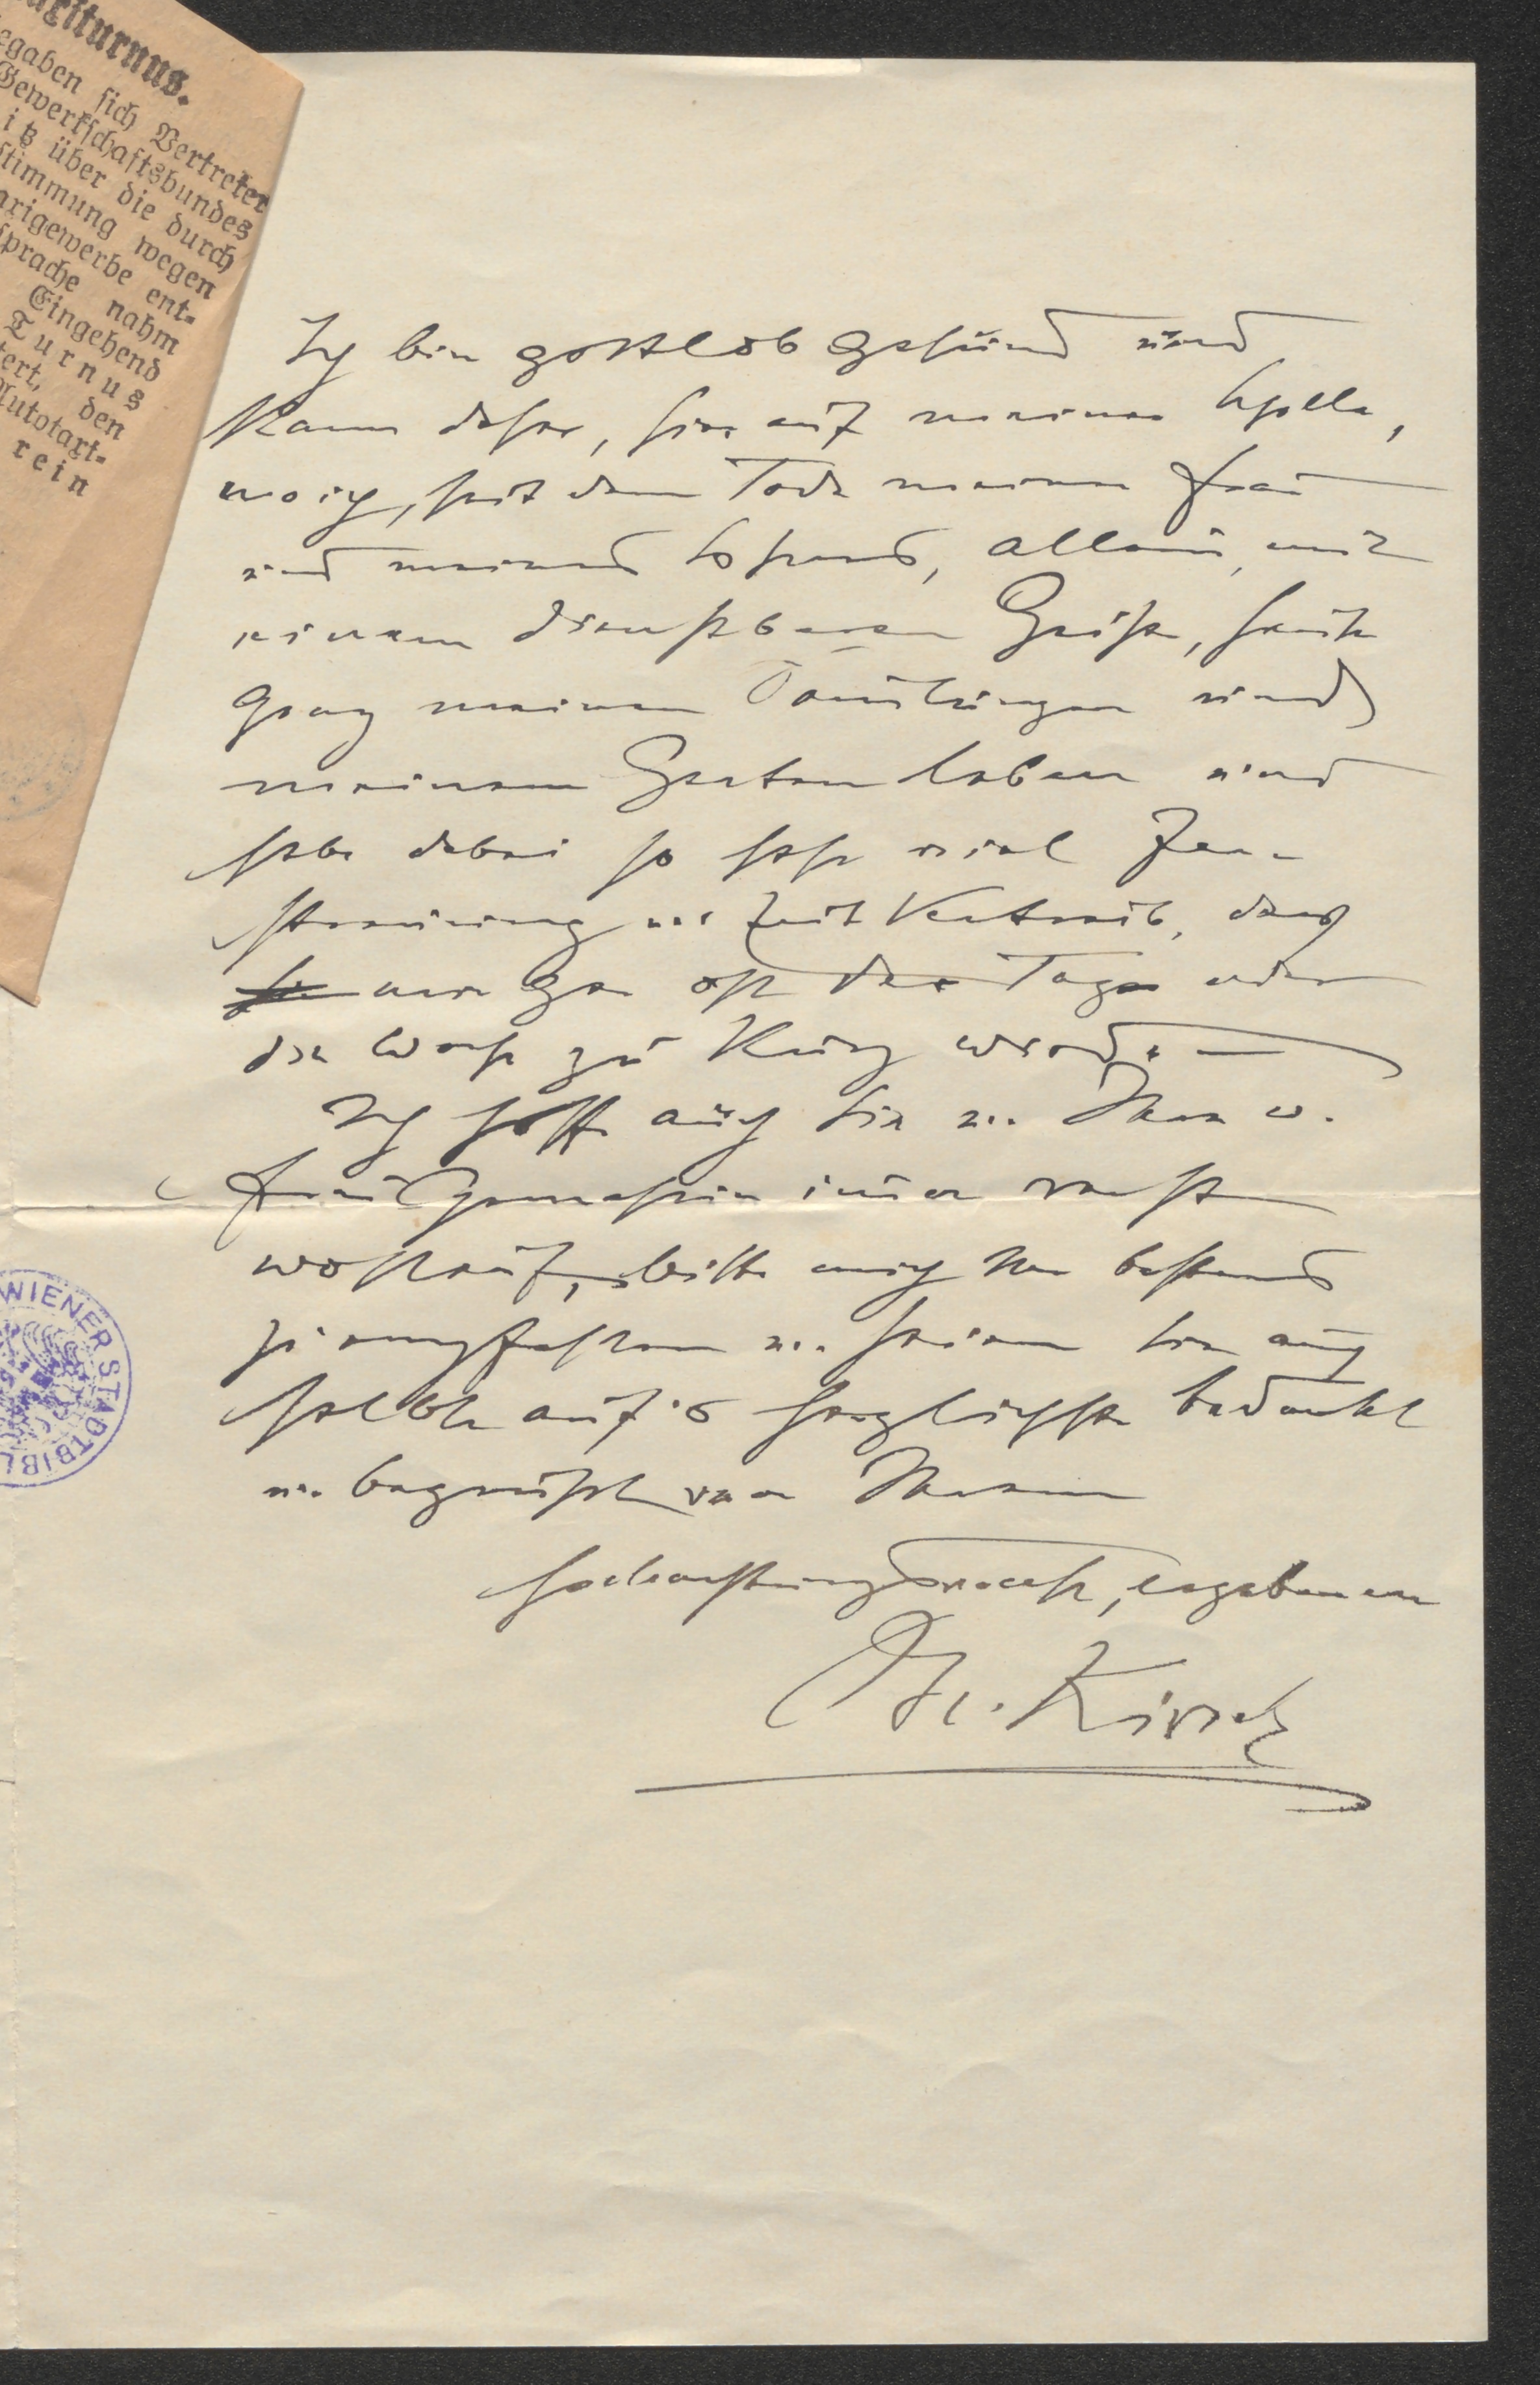 ariturnus.
egaben sich Vertreter
Gewerkschaftsbundes
itz über die durch
stimmung wegen
arigewerbe ent-
sprache nahm
Eingehend
Turnus
tert, den
Autotaxi-
rein
Ich bin gottlob gesund und
kann daher, hier auf meiner Scholle,
wo ich, seit dem Tode meiner Frau
und meines Sohnes, allein, mit
einem dienstbaren Geiste, heute
ganz meinen Domizil und
meinem Garten leben und
habe dabei so sehr viel Zer-
streuung u. Zeitvertreib, dass
mir gar oft der Tag oder
die Woche zu kurz wird. —
Ich hoffe auch Sie u. Ihre w.
Frau Gemahlin immer recht
wohlauf, bitte mich Ihr bestens
zu empfehlen u. seien Sie auch
selbst auf's herzlichste bedankt
u. begrüsst von Ihrem
hochachtungsvollst, ergebenen
Kirsch
WIENER STADTBIBL